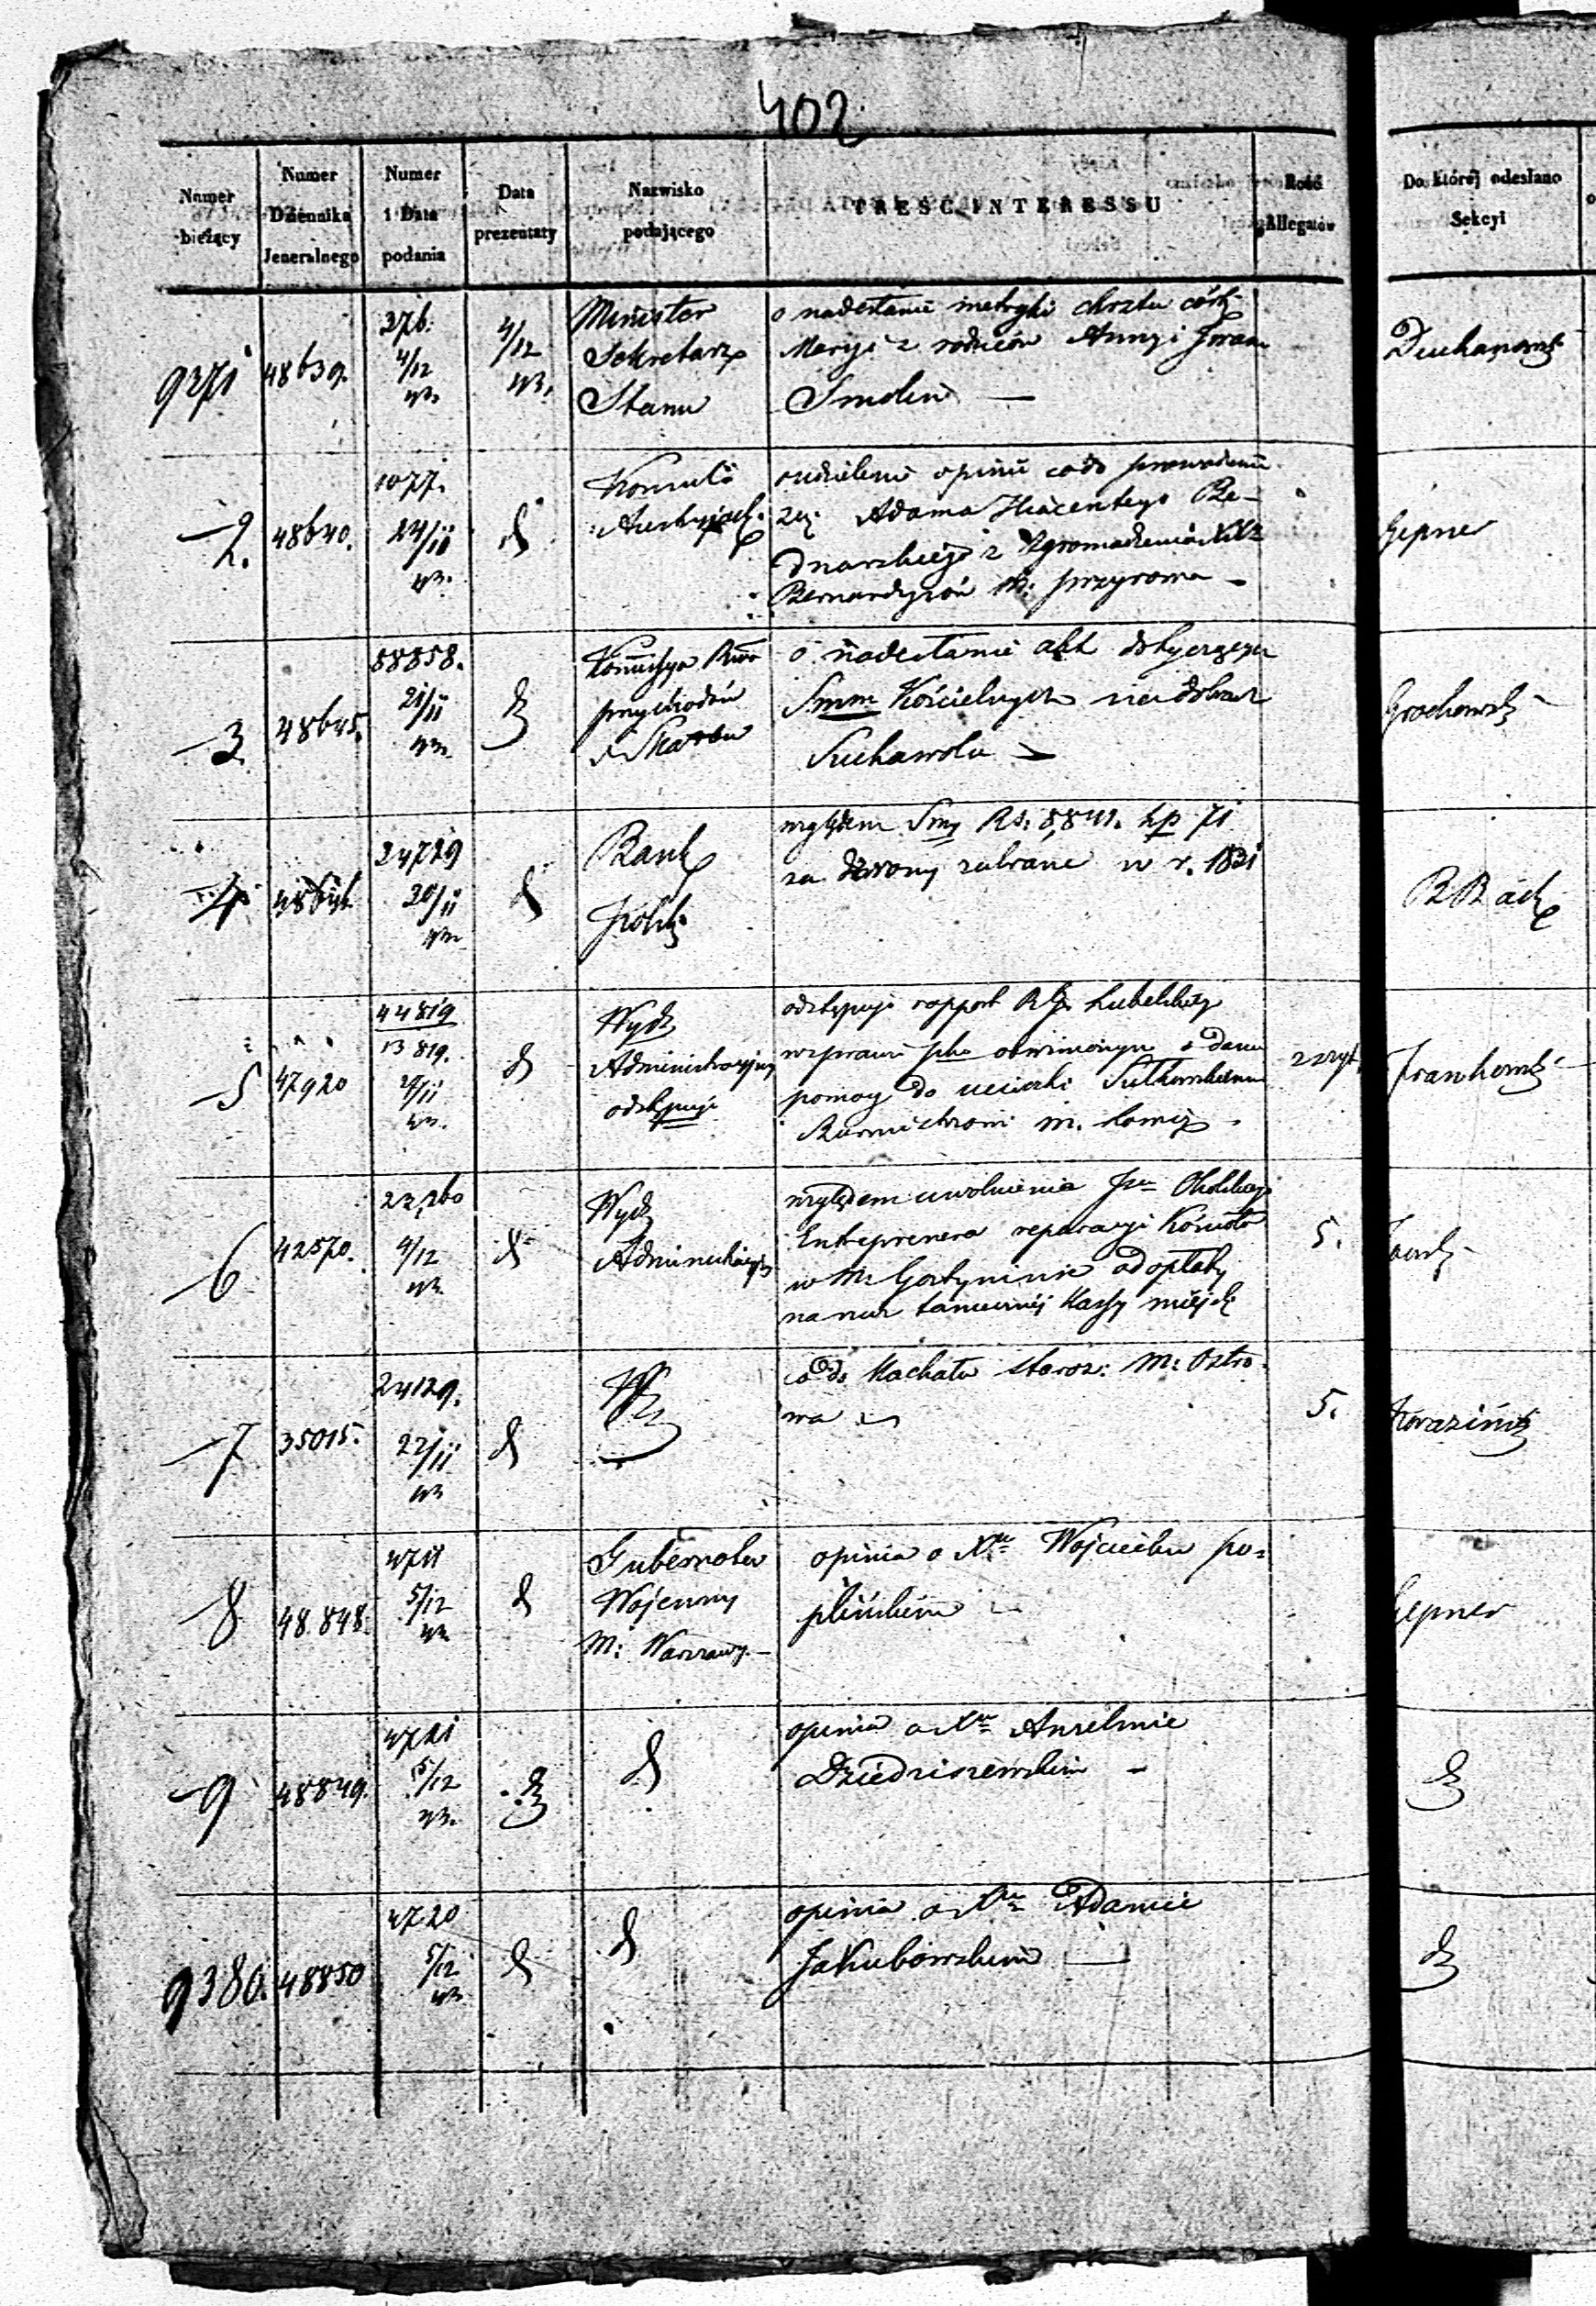 402
Numer bieżący
Numer Dziennika Jeneralnego
Numer i Data podania
Data prezentaty
Nazwisko podającego
TREŚĆ INTERESSU
Ilość Allegatów
Do której odesłano Sekcyi
9371 48639. 276. 4/12 43. 4/12 43. Minister Sekretarz Stanu
o nadesłanie metryki chrztu córk
Maryi z rodziców Anny i
Smolin —
2. 48640. 1077. 24/11 43. Konsul Austryjack.
o udzielenie opinii co do prowadzenia
się Adama Hiacentego Be-
dnarskiego z Zgromadzenia XX
Bernardynów m: Przyrowa —
Gepner
3. 48645. 58858. 21/11 43. Kommissya Rzwa przychodów i Skarbu
o nadesłanie akt dotyczących
Summ Kościelnych na dobrach
Suchawola —
Grochowsk
4. 24729 20/11 43. Bank Polsk
względem Smy Rs. 5,841. kp 71
za dzwony zabrane w r. 1831
5 47920 44819 13819. 43. Wydz Administracyjny odstępuje
odstępuje rapport Rz. Lubelskiego
w sprawie obwinionym o danie
pomocy do ucieczki Sutkowskiemu
Burmistrzowi m. 
6 42570. 23,260 4/12 43. Wydz Administracyjny
względem uwolnienia Okolskiego
Entreprenera reparacyi Kościoła
w M. Gostyninie od opłaty
na rzecz tamecznéj Kassy miejsk
5.
7 35015. 24129. 22/11 43
co do Machatu staroz: M: Ostro-
wa
5.
8 48.848. 4711 5/12 43. Gubernator Wojenny M: Warszawy. —
opinia o Xu Wojciechu Po-
plińskim
Gepner
9 48849. 4721 5/12 43.
opinia o Xu Anzelmie
Dziedziszewskim —
9380. 48850 4720 5/12 43
opinia o Xu Adamie
Jakubowskim —